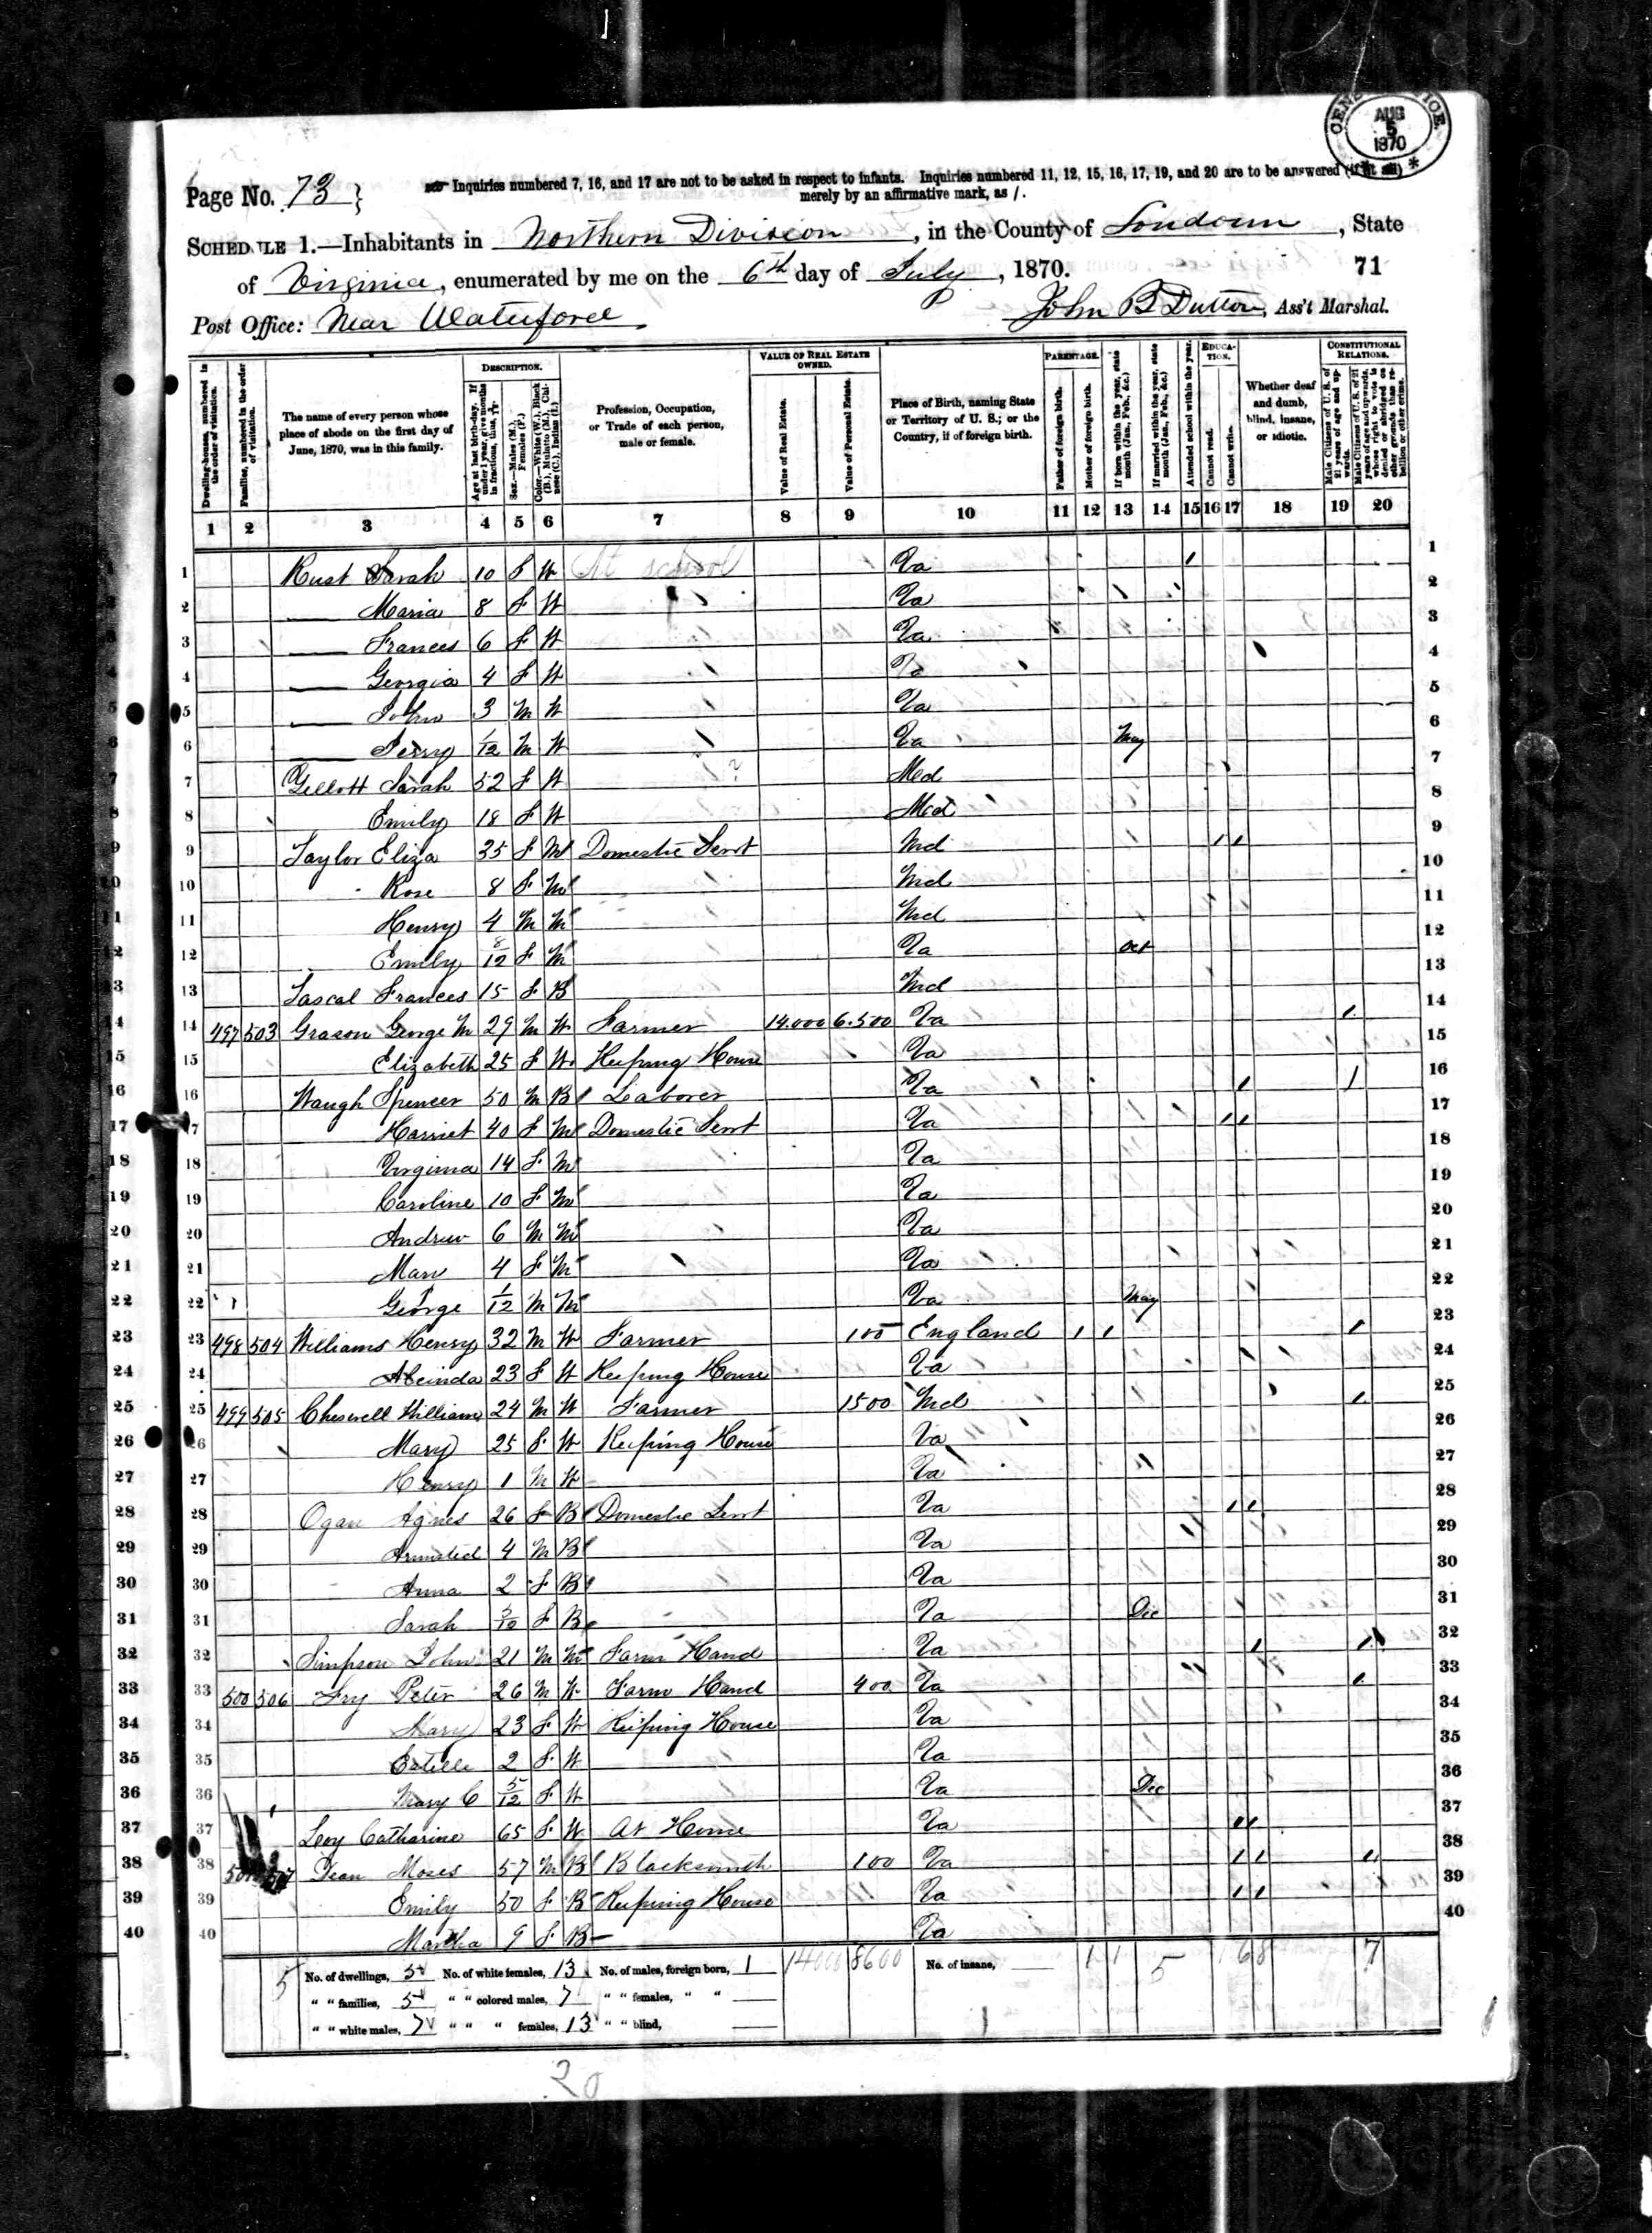 CENSUS OFFICE
AUG
5
1870
Page No. 73
Inquiries numbered 7, 16, and 17 are not to be asked in respect to infants. Inquiries numbered 11, 12, 15, 16, 17, 19, and 20 are to be answered (if at all)
merely by an affirmative mark, as /.
SCHEDULE 1.—Inhabitants in Northern Division, in the County of Loudoun, State
of Virginia, enumerated by me on the 6th day of July, 1870. 71
Post Office: Near Waterford John B Dutton, Ass't Marshal.
VALUE OF REAL ESTATE OWNED. PARENTAGE. EDUCATION. CONSTITUTIONAL RELATIONS.
DESCRIPTION.
Dwelling-houses, numbered in the order of visitation.
Families, numbered in the order of visitation.
The name of every person whose place of abode on the first day of June, 1870, was in this family.
Age at last birth-day. If under 1 year, give months in fractions, thus, 3/12.
Sex.—Males (M.), Females (F.)
Color.—White (W.), Black (B.), Mulatto (M.), Chinese (C.), Indian (I.)
Profession, Occupation, or Trade of each person, male or female.
Value of Real Estate.
Value of Personal Estate.
Place of Birth, naming State or Territory of U. S.; or the Country, if of foreign birth.
Father of foreign birth.
Mother of foreign birth.
If born within the year, state month (Jan., Feb., &c.)
If married within the year, state month (Jan., Feb., &c.)
Attended school within the year.
Cannot read.
Cannot write.
Whether deaf and dumb, blind, insane, or idiotic.
Male Citizens of U. S. of 21 years of age and upwards.
Male Citizens of U. S. of 21 years of age and upwards, whose right to vote is denied or abridged on other grounds than rebellion or other crime.
1 2 3 4 5 6 7 8 9 10 11 12 13 14 15 16 17 18 19 20
1 Rust Sarah 10 F W At school Va / 1
2 — Maria 8 F W Va 2
3 — Frances 6 F W Va 3
4 — Georgia 4 F W Va 4
5 — John 3 M W Va 5
6 — 1/12 M W Va May 6
7 Gellott Sarah 52 F W Md 7
8 Emily 18 F W Md 8
9 Taylor Eliza 35 F M Domestic Servt Md / / 9
10 Rose 8 F M Md 10
11 Henry 4 M M Md 11
12 Emily 8/12 F M Va Oct 12
13 Frances 15 F B Md 13
14 497 503 Grason George M 29 M W Farmer 14.000 6.500 Va / 14
15 Elizabeth 25 F W Keeping House Va 15
16 Waugh Spencer 50 M B Leaborer Va / / 16
17 Harriet 40 F M Domestic Servt Va / / 17
18 Virginia 14 F M Va 18
19 Caroline 10 F M Va 19
20 Andrew 6 M M Va 20
21 Mary 4 F M Va 21
22 George 1/12 M M Va May 22
23 498 504 Williams Henry 32 M W Farmer 100 England / / / 23
24 23 F W Keeping House Va 24
25 499 505 Cheswell William 24 M W Farmer 1500 Md / 25
26 Mary 25 F W Keeping House Va 26
27 Henry 1 M W Va 27
28 Ogan Agnes 26 F B Domestic Servt Va / / 28
29 Armsted 4 M B Va 29
30 Anna 2 F B Va 30
31 Sarah F B Va Dec 31
32 Simpson John 21 M M Farm Hand Va / / 32
33 500 506 Fry Peter 26 M W Farm Hand 400 Va / 33
34 Mary 23 F W Keeping House Va 34
35 Estelle 2 F W Va 35
36 Mary C 5/12 F W Va Dec 36
37 Levy Catharine 65 F W At Home Va / / 37
38 Moses 57 M B Blacksmith 100 Va / / / 38
39 Emily 50 F B Keeping House Va / / 39
40 Martha 9 F B Va 40
5 No. of dwellings, 5 No. of white females, 13 No. of males, foreign born, 1 14000 8600 No. of insane, 1 1 5 1 6 8 7
" " families, 5 " " colored males, 7 " " females, " "
" " white males, 7 " " " females, 13 " " blind,
20